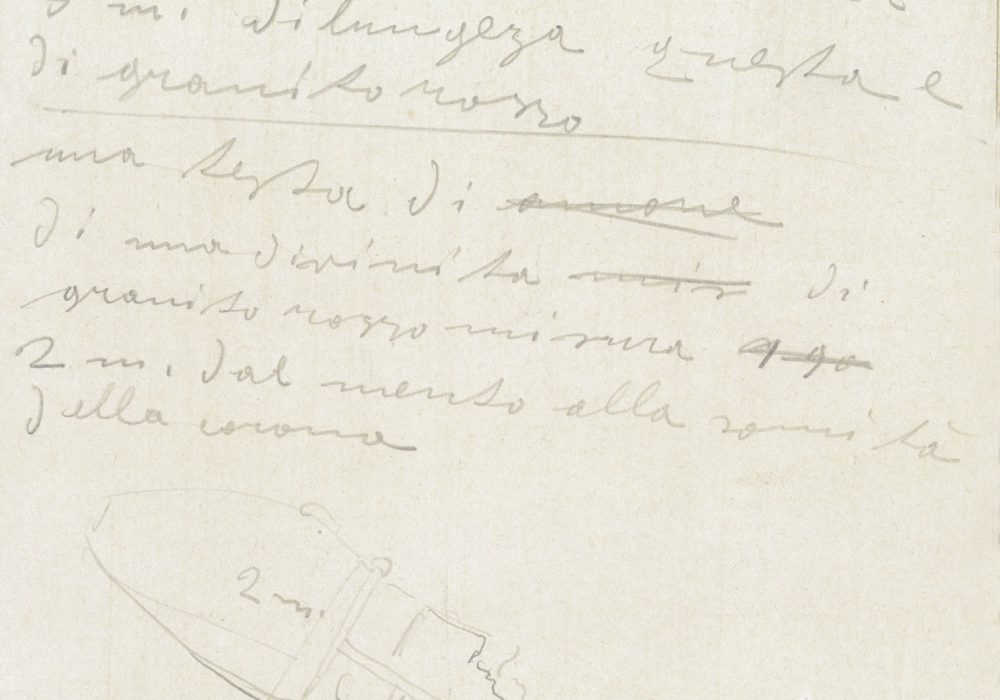 m. di lungeza questa e
di granito rosso
una testa di amone
di una divinita mis di
granito rosso misura 1 90
2 m. dal mento alla somità
della corona
2 m.